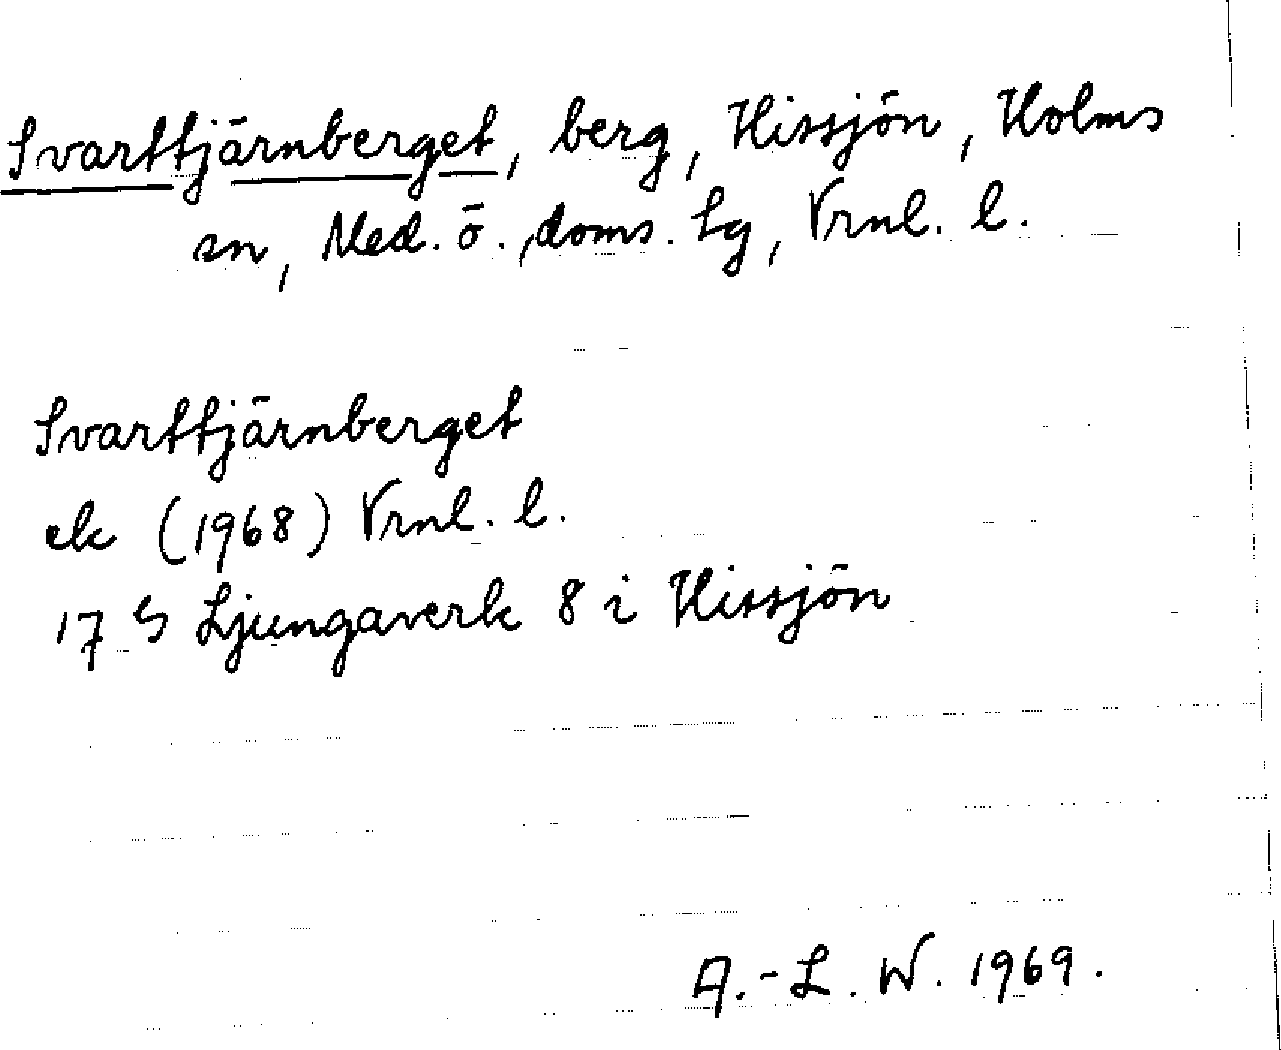 Svarttjärnberget, berg, Hissjön, Holms
sn, Med. ö., doms. Lg, Vrnl. l.
Svarttjärnberget
ek (1968) Vrnl. l.
17 S Ljungaverk 8 i Hissjön
A.-L. W. 1969.